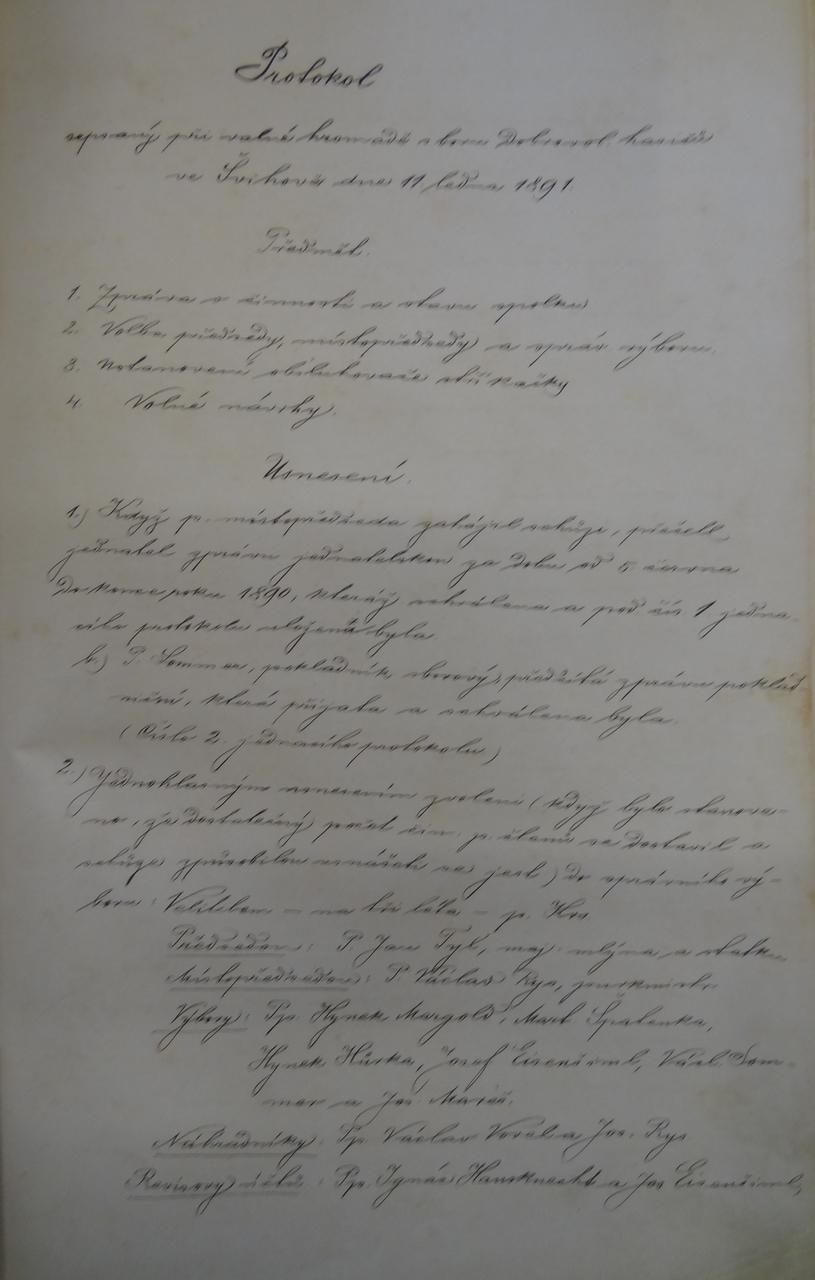 Protokol
sepsaný při valné hromadě sboru Dobrovol. hasičů
ve Švihově dne 11 ledna 1891.
Předmět.
1. Zpráva o činnosti a stavu spolku
2. Volba předsedy, místopředsedy a správ. výboru.
3. Ustanovení obsluhovače stříkačky
4. Volné návrhy.
Usnesení.
1.) Když p. místopředseda zahájil schůzi, přečetl
jednatel zprávu jednatelskou za dobu od 5 června
do konce roku 1890, kteráž schválena a pod čís 1 jedna-
cího protokolu uložená byla
b.) P. Sommer, pokladník sborový, předčítá zprávu poklad-
niční, která přijata a schválena byla.
(Číslo 2. jednacího protokolu)
2.) Jednohlasným usnesením zvoleni (když bylo stanove-
no, že dostatečný počet čin. p. členů se dostavil a
schůze způsobilou usnášeti se jest) do správního vý-
boru: Velitelem – na tři léta – p.
Předsedou: P. Jan Tyl, maj. mlýna a statku
Místopředsedou: P. Václav Rys,
Výbory: Pp. Hynek Margold, Mart Špalenka,
Hynek Hůrka, Josef Eisenšiml, Václ. Som-
mer a Jos. Mareš.
Náhradníky: Pp. Václav Voráč a Jos. Rys
Revisory účtů: Pp. Ignác Hausknecht a Jos Eisenšiml,